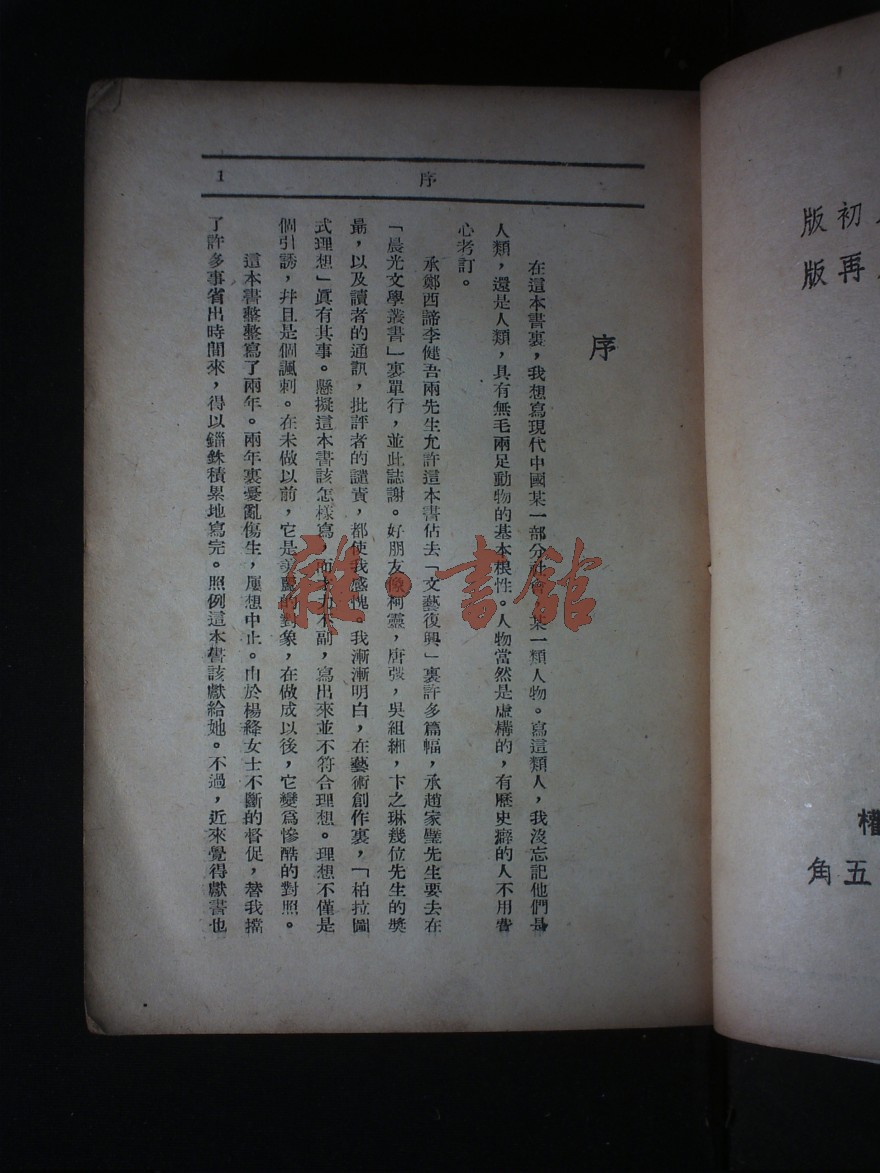 序
1
序
在這本書裏,我想寫現代中國某一部分社會、某一類人物。寫這類人,我沒忘記他們是
人類,還是人類,具有無毛兩足動物的基本根性。人物當然是虛構的,有歷史癖的人不用費
心考訂。
承鄭西諦李健吾兩先生允許這本書佔去「文藝復興」裏許多篇幅,承趙家璧先生要去在
「晨光文學叢書」裏單行,並此誌謝。好朋友像柯靈,唐弢,吳組緗,卞之琳幾位先生的獎
勗,以及讀者的通訊,批評者的譴責,都使我感愧。我漸漸明白,在藝術創作裏,「柏拉圖
式理想」眞有其事。懸擬這本書該怎樣寫,而才力不副,寫出來並不符合理想。理想不僅是
個引誘,幷且是個諷刺。在未做以前,它是美麗的對象,在做成以後,它變爲慘酷的對照。
這本書整整寫了兩年。兩年裏憂亂傷生,屢想中止。由於楊絳女士不斷的督促,替我擋
了許多事省出時間來,得以錙銖積累地寫完。照例這本書該獻給她。不過,近來覺得獻書也
初版
再版
權
五角
雜·書館